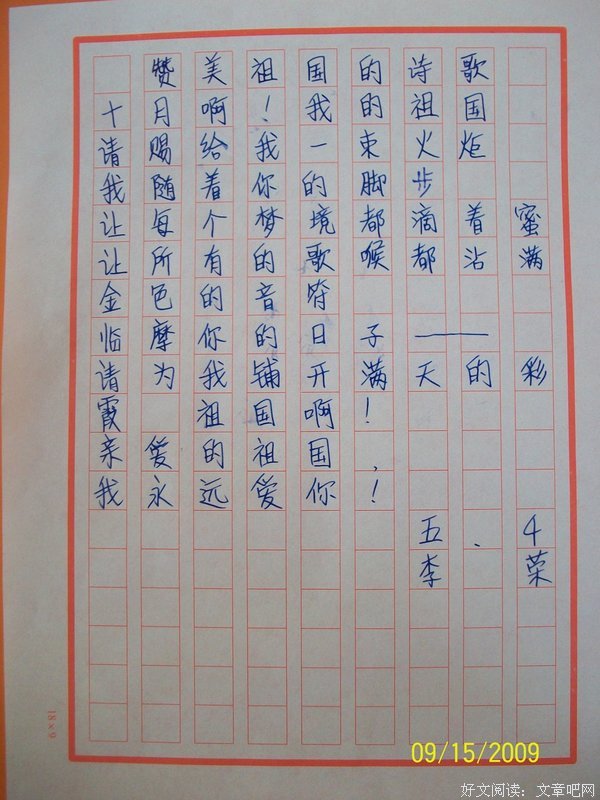 赞美祖国的诗歌
十月啊!我的祖国
请赐给我一束火炬
我随着你的脚步
让每个梦境都滴着蜜
让所有的歌喉都沾满
金色的音符
临摩你的日子——
请为我铺开满天的彩
霞 祖国啊!
亲爱的祖国,
我永远爱你!
五、4
李荣
18×9
09/15/2009
好文阅读:文章吧网